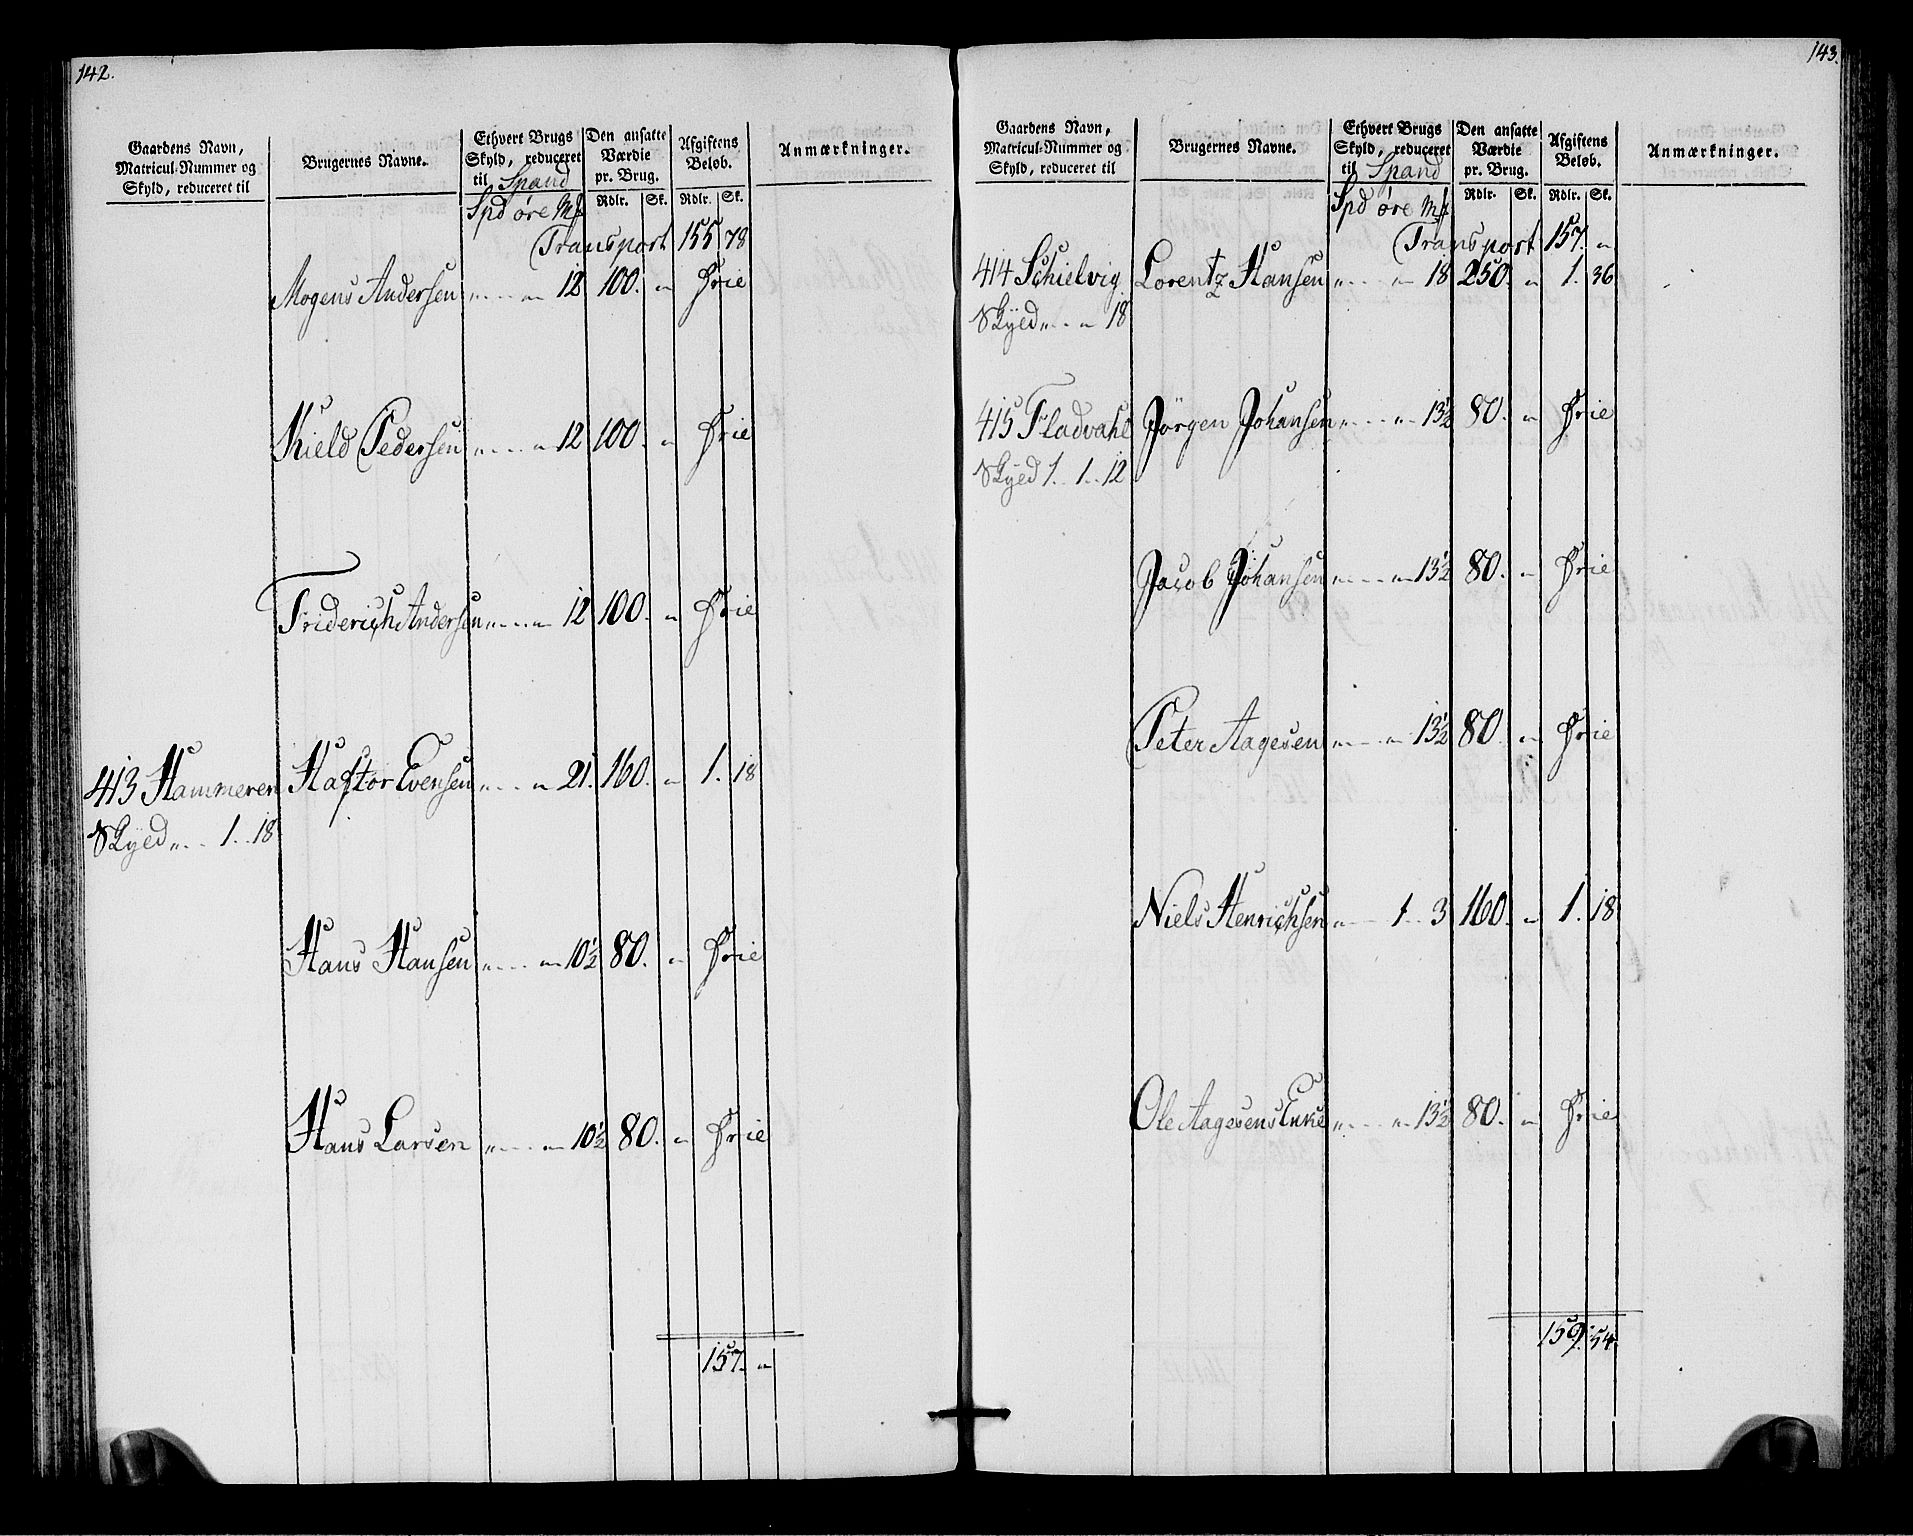 142.
Gaardens Navn, Matricul-Nummer og Skyld, reduceret til
Brugernes Navne.
Ethvert Brugs Skyld, reduceret til Spand
Den ansatte Værdie pr. Brug.
Afgiftens Beløb.
Anmærkninger.
Spd øre Mk Rdlr. Sk. Rdlr. Sk.
Transport 155 78
Mogens Andersen „ „ 12 100. „ Frie
Kield Pedersen „ „ 12 100. „ Frie
Friderich Andersen „ „ 12 100. „ Frie
413 Hammeren Haftor Evensen „ „ 21. 160. „ 1. 18
Skyed „ 1. 18
Hans Hansen „ „ 10½ 80. „ Frie
Hans Larsen „ „ 10½ 80. „ Frie
157. „
143.
Gaardens Navn, Matricul-Nummer og Skyld, reduceret til
Brugernes Navne.
Ethvert Brugs Skyld, reduceret til Spand
Den ansatte Værdie pr. Brug.
Afgiftens Beløb.
Anmærkninger.
Spd øre Mk Rdlr. Sk. Rdlr. Sk.
Transport 157. „
414 Schielvig Lorentz Hansen „ „ 18 250. „ 1. 36
Skyed „ „ 18
415 Fladvahl Jörgen Johansen „ „ 13½ 80. „ Frie
Skyed 1. 1. 12
Jacob Johansen „ „ 13½ 80. „ Frie
Peter Aagesen „ „ 13½ 80. „ Frie
Niels Henrichsen „ 1 3 160. „ 1. 18
Ole Aagesens Enke „ „ 13½ 80. „ Frie
159. 54.